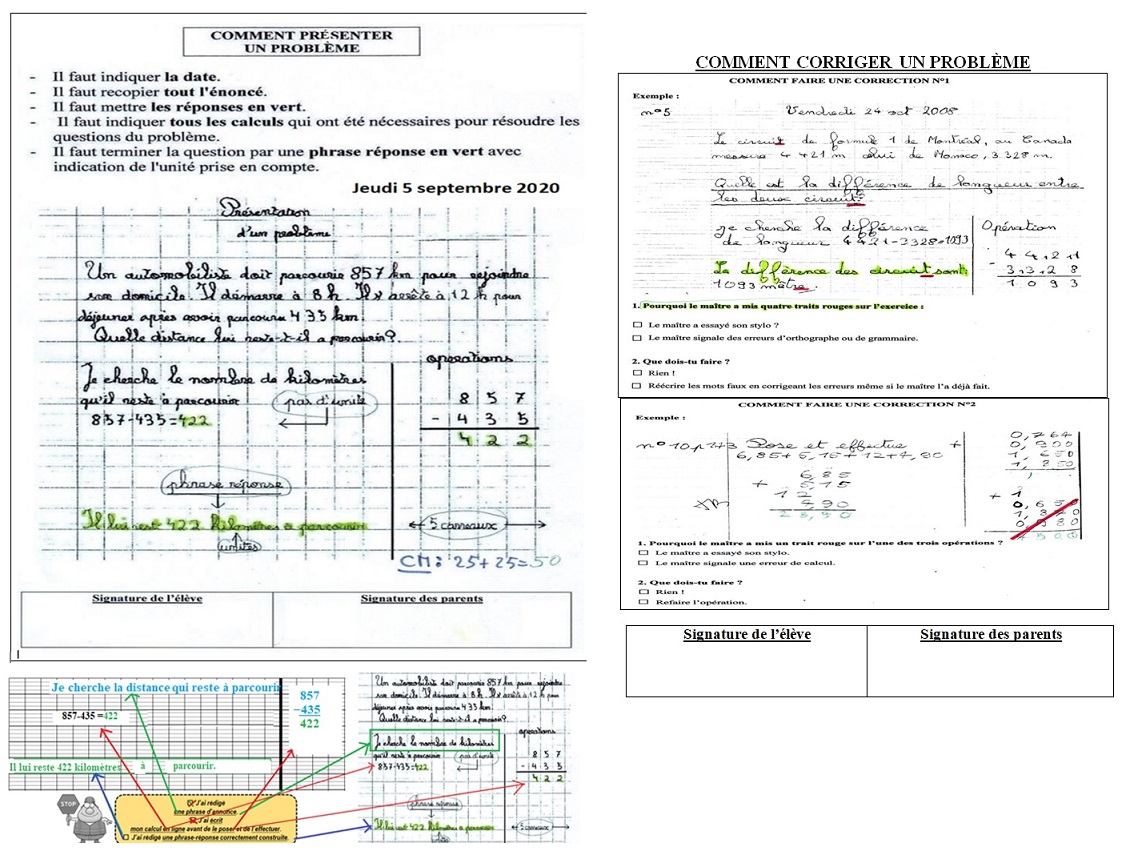 COMMENT PRÉSENTER
UN PROBLÈME
- Il faut indiquer la date.
- Il faut recopier tout l'énoncé.
- Il faut mettre les réponses en vert.
- Il faut indiquer tous les calculs qui ont été nécessaires pour résoudre les
questions du problème.
- Il faut terminer la question par une phrase réponse en vert avec
indication de l'unité prise en compte.
Jeudi 5 septembre 2020
Présentation
d'un problème
Un automobiliste doit parcourir 857 km pour rejoindre
son domicile. Il démarre à 8 h. Il s'arrête à 12 h pour
déjeuner après avoir parcouru 435 km.
Quelle distance lui reste-t-il a parcourir?
operations
Je cherche le nombre de kilomètres
qu'il reste à parcourir
pas d'unité
857-435=422
8 5 7
- 4 3 5
4 2 2
phrase réponse
Il lui est 422 kilomètres à parcourir
5 carreaux
unités
CM: 25+25=50
Signature de l'élève
Signature des parents
Je cherche la distance qui reste à parcourir
857
-435
422
857-435 =422
Il lui reste 422 kilomètres à parcourir.
STOP
J'ai rédigé
une phrase d'annonce.
J'ai écrit
mon calcul en ligne avant de le poser et de l'effectuer.
J'ai rédigé une phrase-réponse correctement construite.
Un automobiliste doit parcourir 857 km pour rejoindre
son domicile. Il démarre à 8 h. Il s'arrête à 12 h pour
déjeuner après avoir parcouru 435 km.
Quelle distance lui reste-t-il a parcourir?
operations
Je cherche le nombre de kilomètres
qu'il reste à parcourir
pas d'unité
857-435=422
8 5 7
- 4 3 5
4 2 2
phrase réponse
Il lui est 422 kilomètres à parcourir
5 carreaux
COMMENT CORRIGER UN PROBLÈME
COMMENT FAIRE UNE CORRECTION N°1
Exemple :
n°5
Vendredi 24 oct 2008
Le circuit de formule 1 de Montréal, au Canada
mesure 4 421 m celui de Monaco, 3.328 m.
Quelle est la différence de longueur entre
les deux circuit?
Je cherche la différence
de longueur 4421-3328=1093
Opération
4 4 2 1
- 3 3 2 8
1 0 9 3
La différence des circuit sont
1093 mètre.
1. Pourquoi le maître a mis quatre traits rouges sur l'exercice :
Le maître a essayé son stylo ?
Le maître signale des erreurs d'orthographe ou de grammaire.
2. Que dois-tu faire ?
Rien !
Réécrire les mots faux en corrigeant les erreurs même si le maître l'a déjà fait.
COMMENT FAIRE UNE CORRECTION N°2
Exemple :
n°10 p 173 Pose et effectue
6,85+5,15+12+4,90
6,85
+ 5,15
12
4,90
28,90
1. Pourquoi le maître a mis un trait rouge sur l'une des trois opérations ?
Le maître a essayé son stylo.
Le maître signale une erreur de calcul.
2. Que dois-tu faire ?
Rien !
Refaire l'opération.
Signature de l'élève
Signature des parents